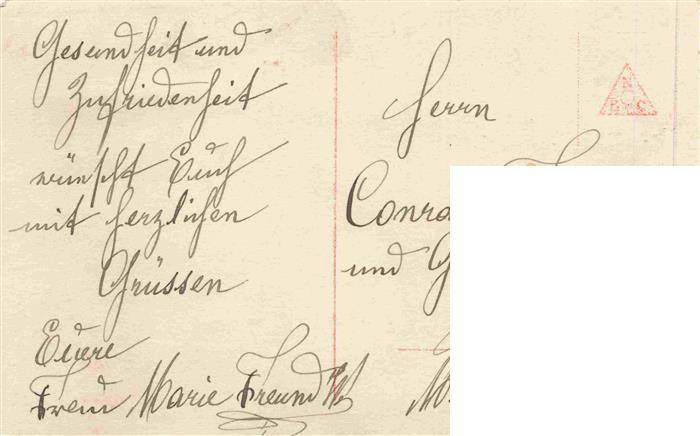 Gesundheit und
Zufriedenheit
wünscht Euch
mit herzlichen
Grüssen
Euere
Marie Freund
Herrn
und
N
B G